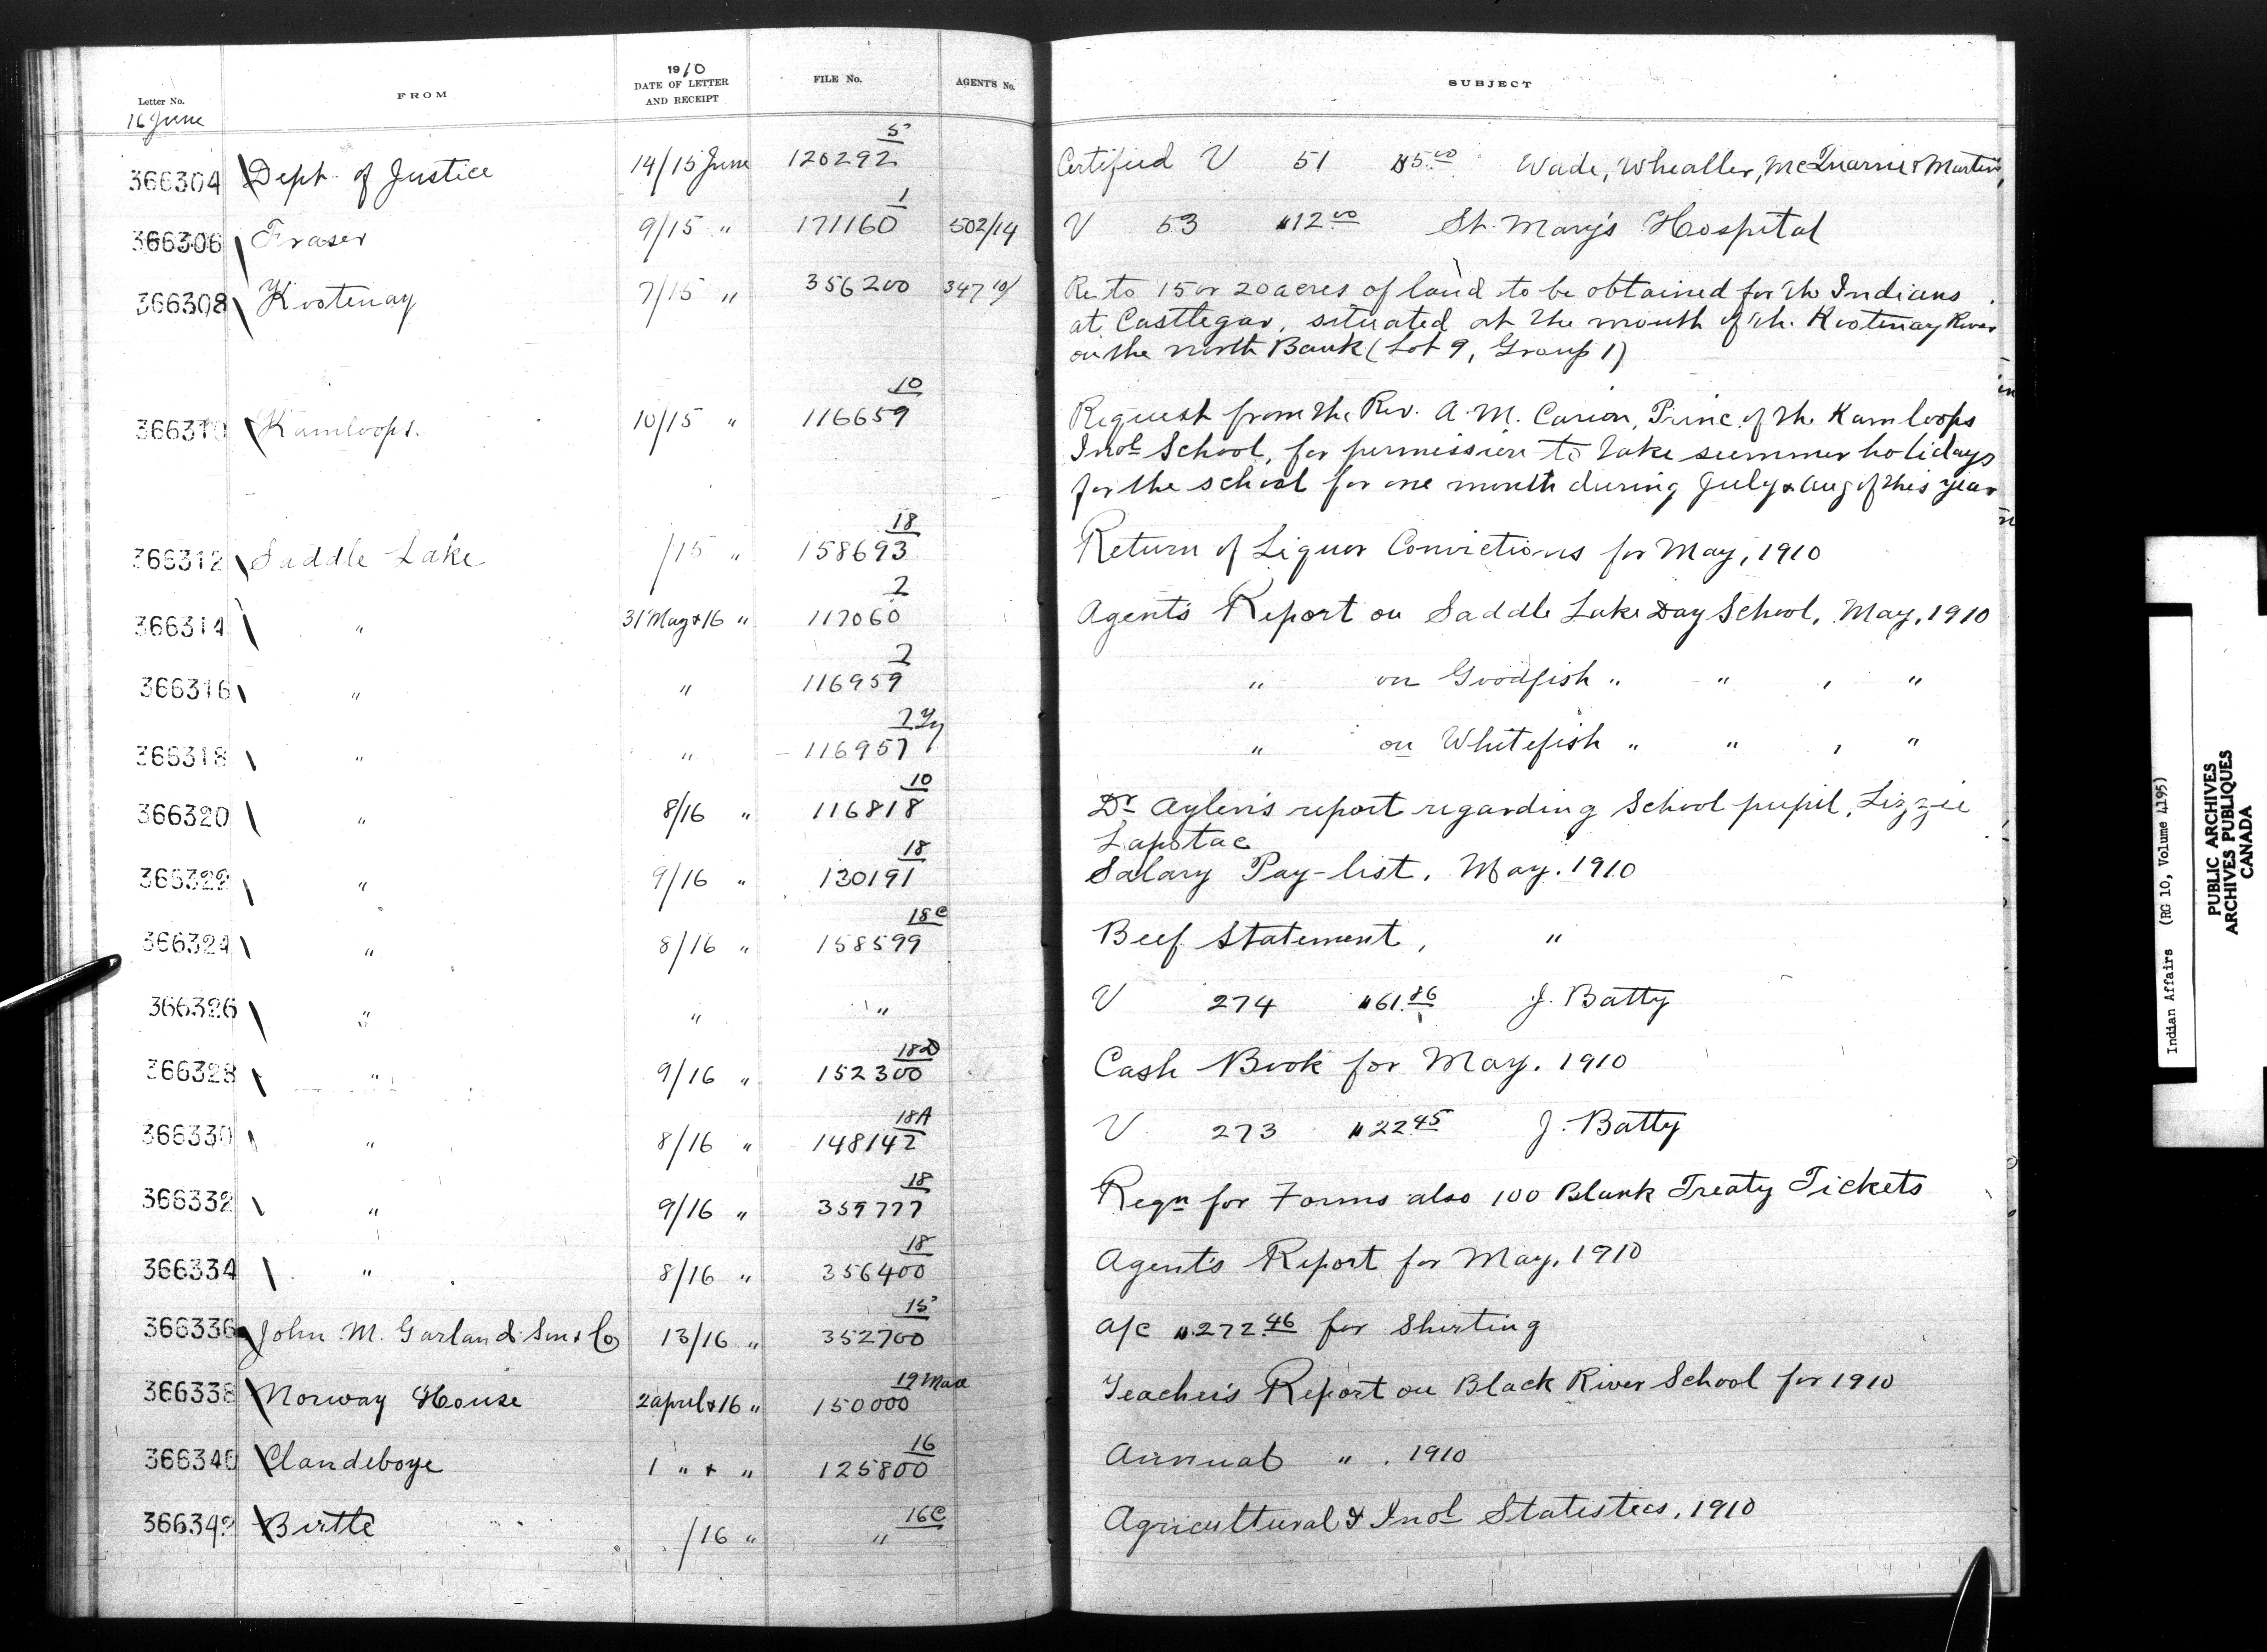 Letter No. FROM 1910 DATE OF LETTER AND RECEIPT FILE No. AGENT'S No. SUBJECT
16 June
366304 Dept. of Justice 14/15 June 120292 5 Certified V 51 $5.00 Wade, Whealler, McQuarrie & Martin,
366306 Fraser 9/15 " 171160 1 502/14 V 53 $12.00 St. Mary's Hospital
366308 Kootenay 7/15 " 356200 347 Re to 15 or 20 acres of land to be obtained for the Indians
at Castlegar, situated at the mouth of th. Kootenay River
on the north Bank (Lot 9, Group 1)
366310 Kamloops. 10/15 " 116659 10 Request from the Rev. A. M. Carion, Princ. of th. Kamloops
Indl School, for permission to take summer holidays
for the school for one month during July & Aug of this year
366312 Saddle Lake /15 " 158693 18 Return of Liquor Convictions for May, 1910
366314 " 31 May & 16 " 117060 2 Agent's Report on Saddle Lake Day School, May, 1910
366316 " " 116959 2 " on Goodfish " " , "
366318 " " 116957 " on Whitefish " " , "
366320 " 8/16 " 116818 10 Dr Aylen's report regarding School pupil, Lizzie
Lapotac
366322 " 9/16 " 130191 18 Salary Pay-list. May. 1910
366324 " 8/16 " 158599 18C Beef Statement, "
366326 " " " V 274 $61.86 J. Batty
366328 " 9/16 " 152300 18D Cash Book for May. 1910
366330 " 8/16 " 148142 18A V 273 $22.45 J. Batty
366332 " 9/16 " 359777 18 Reqn for Forms also 100 Blank Treaty Tickets
366334 " 8/16 " 356400 18 Agent's Report for May, 1910
366336 John M. Garland Son & Co 13/16 " 352700 15 a/c $272.46 for Shirting
366338 Norway House 2 april & 16 " 150000 19 Teacher's Report on Black River School for 1910
366340 Clandeboye 1 " & " 125800 16 Annual " . 1910
366342 Birtle /16 " " 16C Agricultural & Indl Statistics, 1910
Indian Affairs (RG 10, Volume 4195)
PUBLIC ARCHIVES
ARCHIVES PUBLIQUES
CANADA